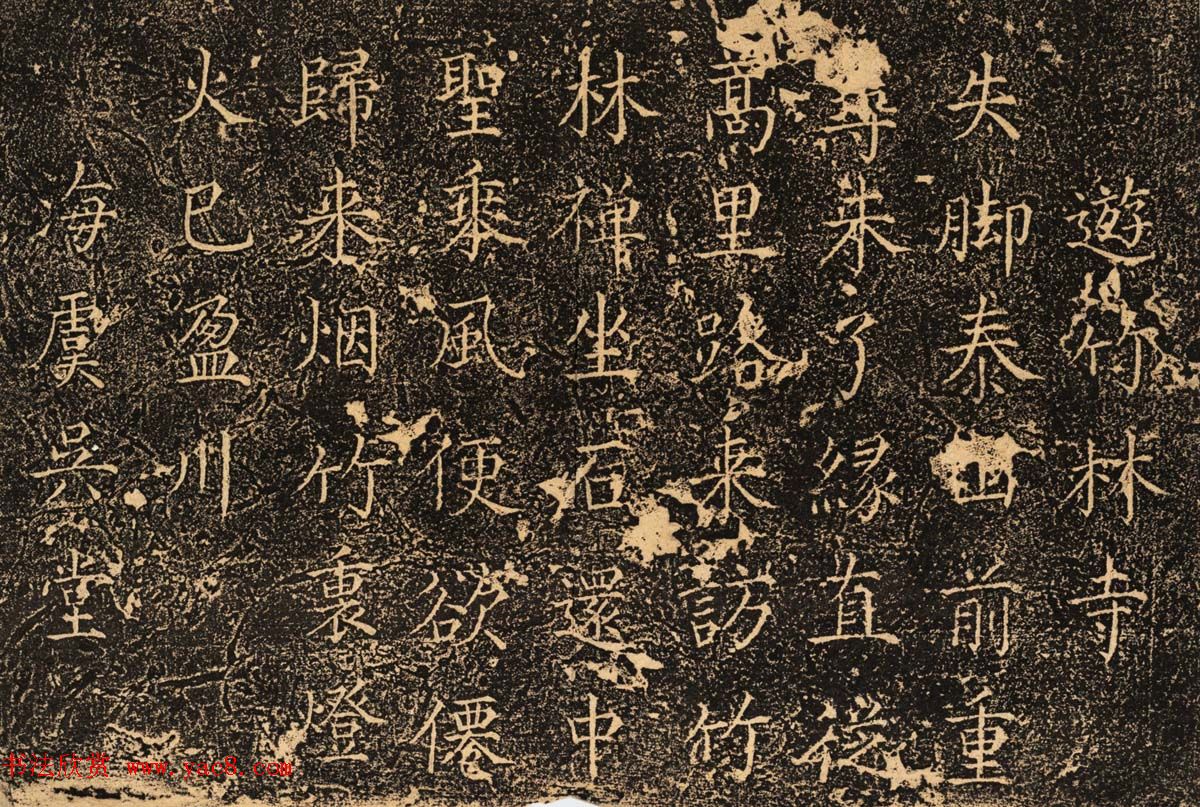 遊竹林寺
失脚泰山前重
尋未了緣直從
蒿里路来訪竹
林禅坐石還中
聖乗風便欲僊
歸来烟竹裏燈
火已盈川
海虞吳堂
书法欣赏 www.yac8.com